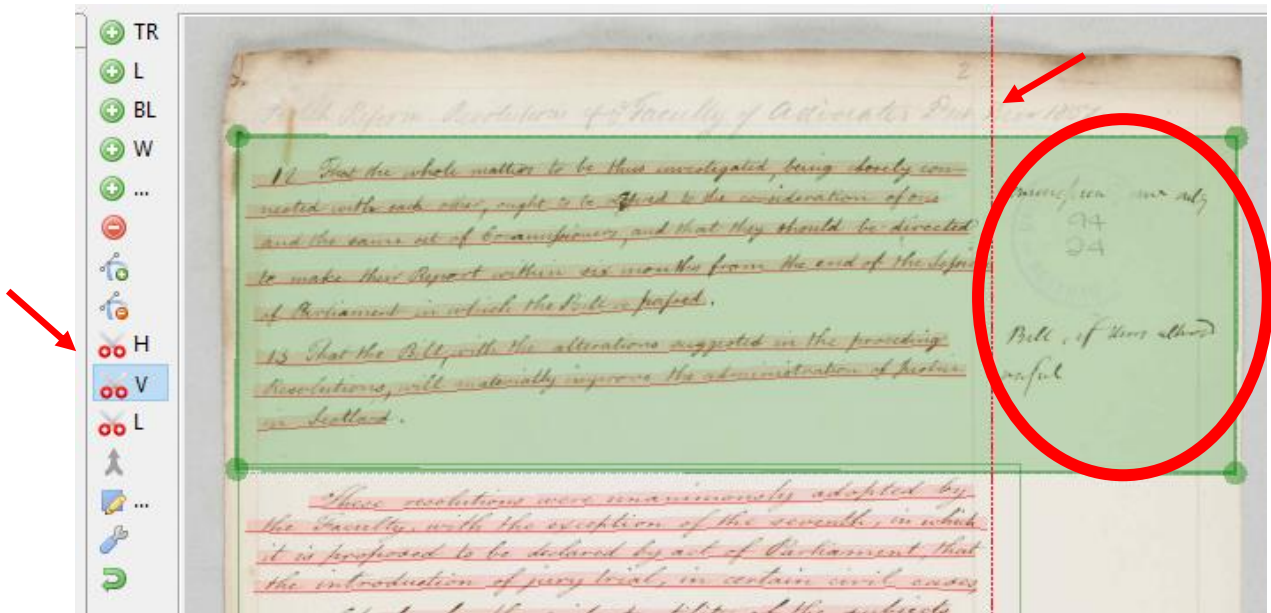 TR
L
BL
W
...
H
V
L
...
2
Resolutions of Faculty of Advocates
12 That the whole matters to be thus investigated, being closely con-
nected with each other, ought to be referred to the consideration of one
and the same set of Commissioners, and that they should be directed
to make their Report within six months from the end of the Session
of Parliament in which the Bill is passed.
13 That the Bill, with the alterations suggested in the preceding
Resolutions, will materially improve the administration of Justice
in Scotland.
94
94
Bill, if thus altered
useful
These resolutions were unanimously adopted by
the Faculty, with the exception of the seventh, in which
it is proposed to be declared by act of Parliament, that
the introduction of jury trial, in certain civil cases
of the subjects